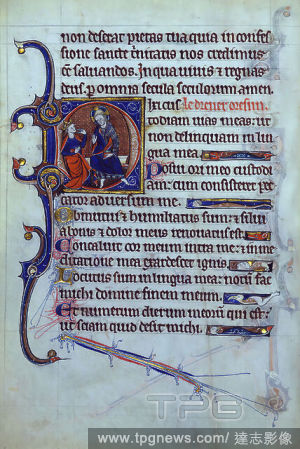 non deserat pietas tua. quia in confes
sione sancte trinitatis nos credimus
esse saluandos. In qua uiuis & regnas
deus. per omnia secula seculorum amen.
Dixi cus
todiam uias meas: ut
non delinquam in lin
gua mea.
Posui ori meo custodi
am: cum consisteret pec
cator aduersum me.
Obmutui & humiliatus sum: & silui
a bonis & dolor meus renouatus est.
Concaluit cor meum intra me: & in me
ditatione mea exardescet ignis.
Locutus sum in lingua mea: notum fac
michi domine finem meum.
Et numerum dierum meorum qui est:
ut sciam quid desit michi.
TPG
www.tpgnews.com/ 達志影像